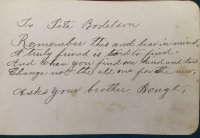 To Tete Bodelson
Remember this and bear in mind
A truly friend is hard to find,
And when you find one kind and true
Change not the old one for the new,
Asks your brother Bengt,